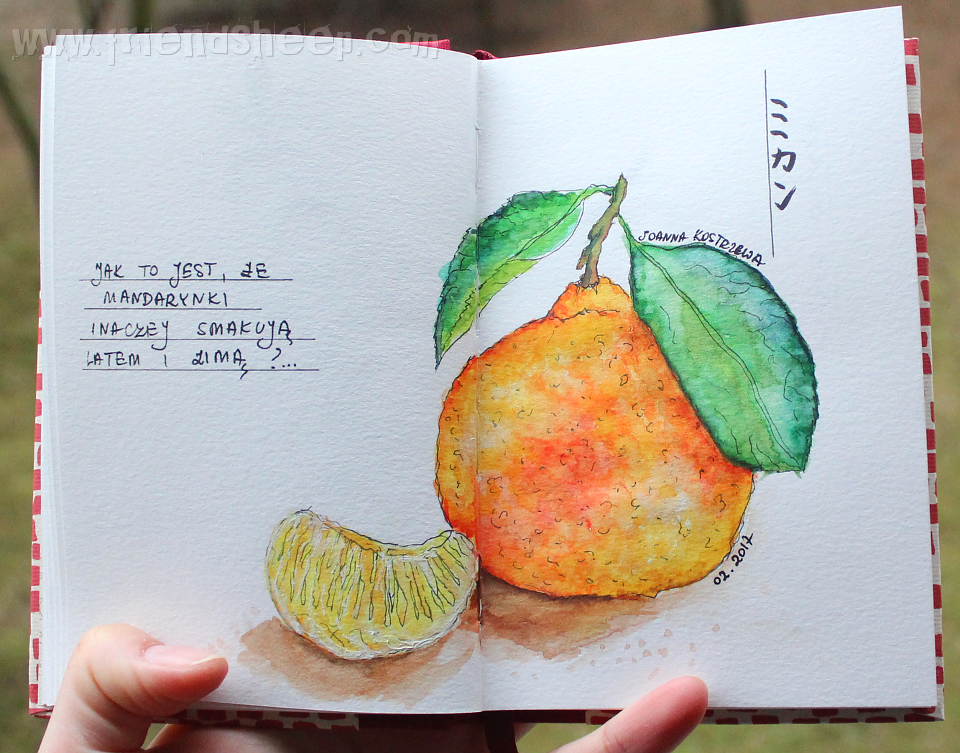 www.friendsheep.com
JAK TO JEST, ŻE
MANDARYNKI
INACZEJ SMAKUJĄ
LATEM I ZIMĄ ?...
ミカン
JOANNA KOSTRZEWA
02.2017